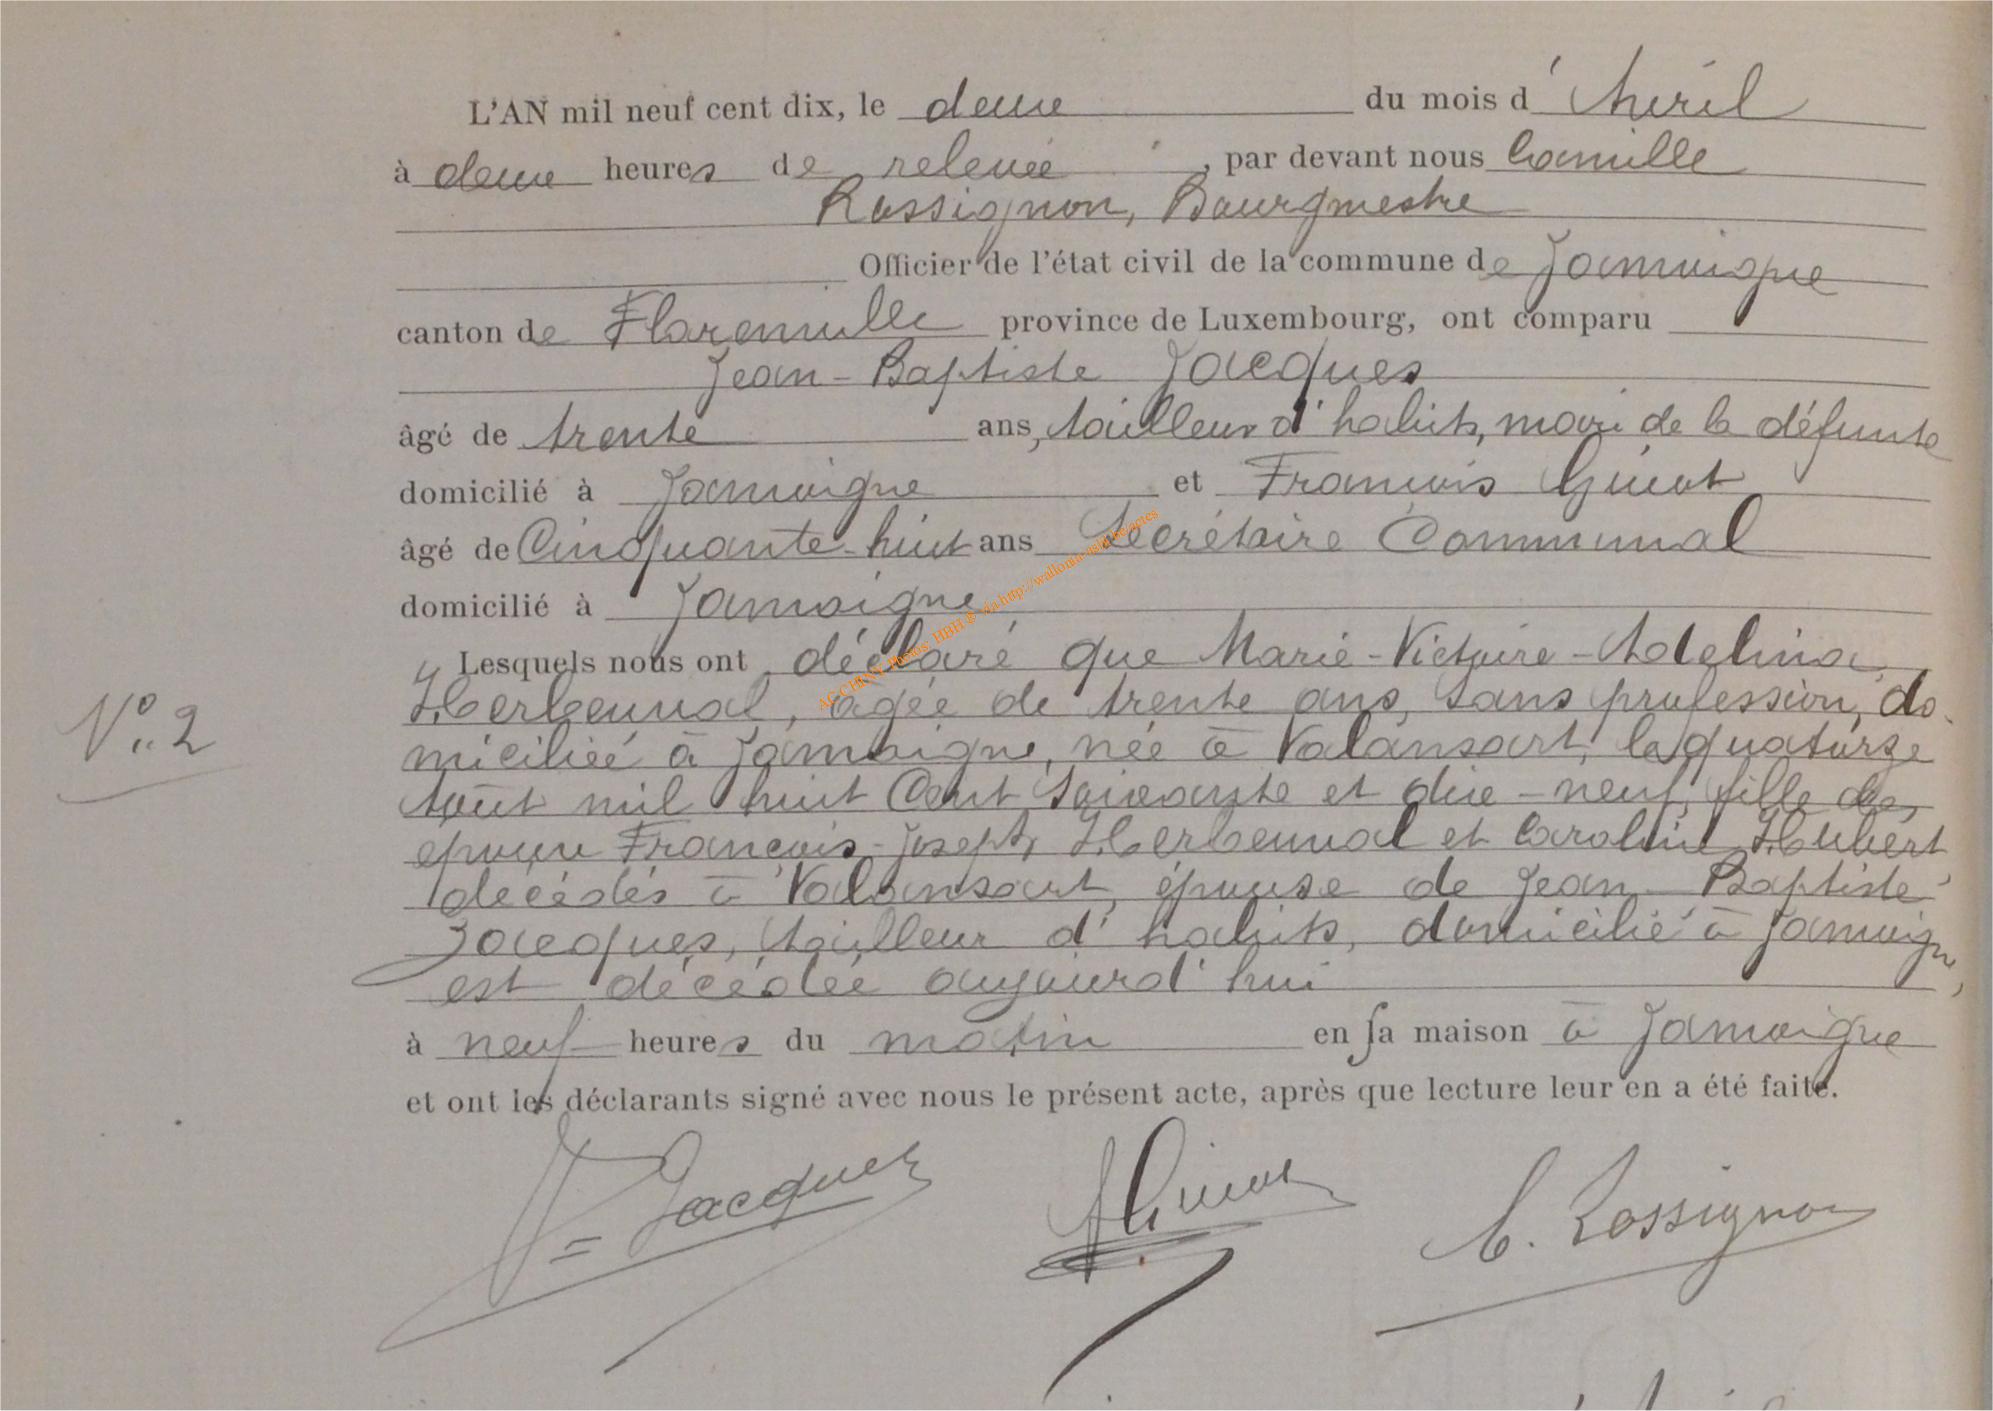 L'AN mil neuf cent dix, le deux du mois d'Avril
à deux heures de relevée, par devant nous Camille
Rossignon, Bourgmestre
Officier de l'état civil de la commune de Jamoigne
canton de Florenville province de Luxembourg, ont comparu
Jean-Baptiste Jacques
âgé de trente ans, tailleur d'habits, mari de la défunte
domicilié à Jamoigne et François Ginot
âgé de Cinquante-huit ans Secrétaire Communal
domicilié à Jamoigne
Lesquels nous ont déclaré que Marie-Victoire-Adelina
Herbeuval, agée de trente ans, sans profession, do-
N° 2
miciliée à Jamoigne, née à Valansart, le quatorze
Août mil huit Cent soixante et dix-neuf, fille des
époux François-Joseph Herbeuval et Caroline Hubert
décédés à Valansart, épouse de Jean-Baptiste
Jacques, tailleur d'habits, domicilié à Jamoigne,
est décédée aujourd'hui
à neuf heures du matin en sa maison à Jamoigne
et ont les déclarants signé avec nous le présent acte, après que lecture leur en a été faite.
J= Jacques F Ginot C. Rossignon